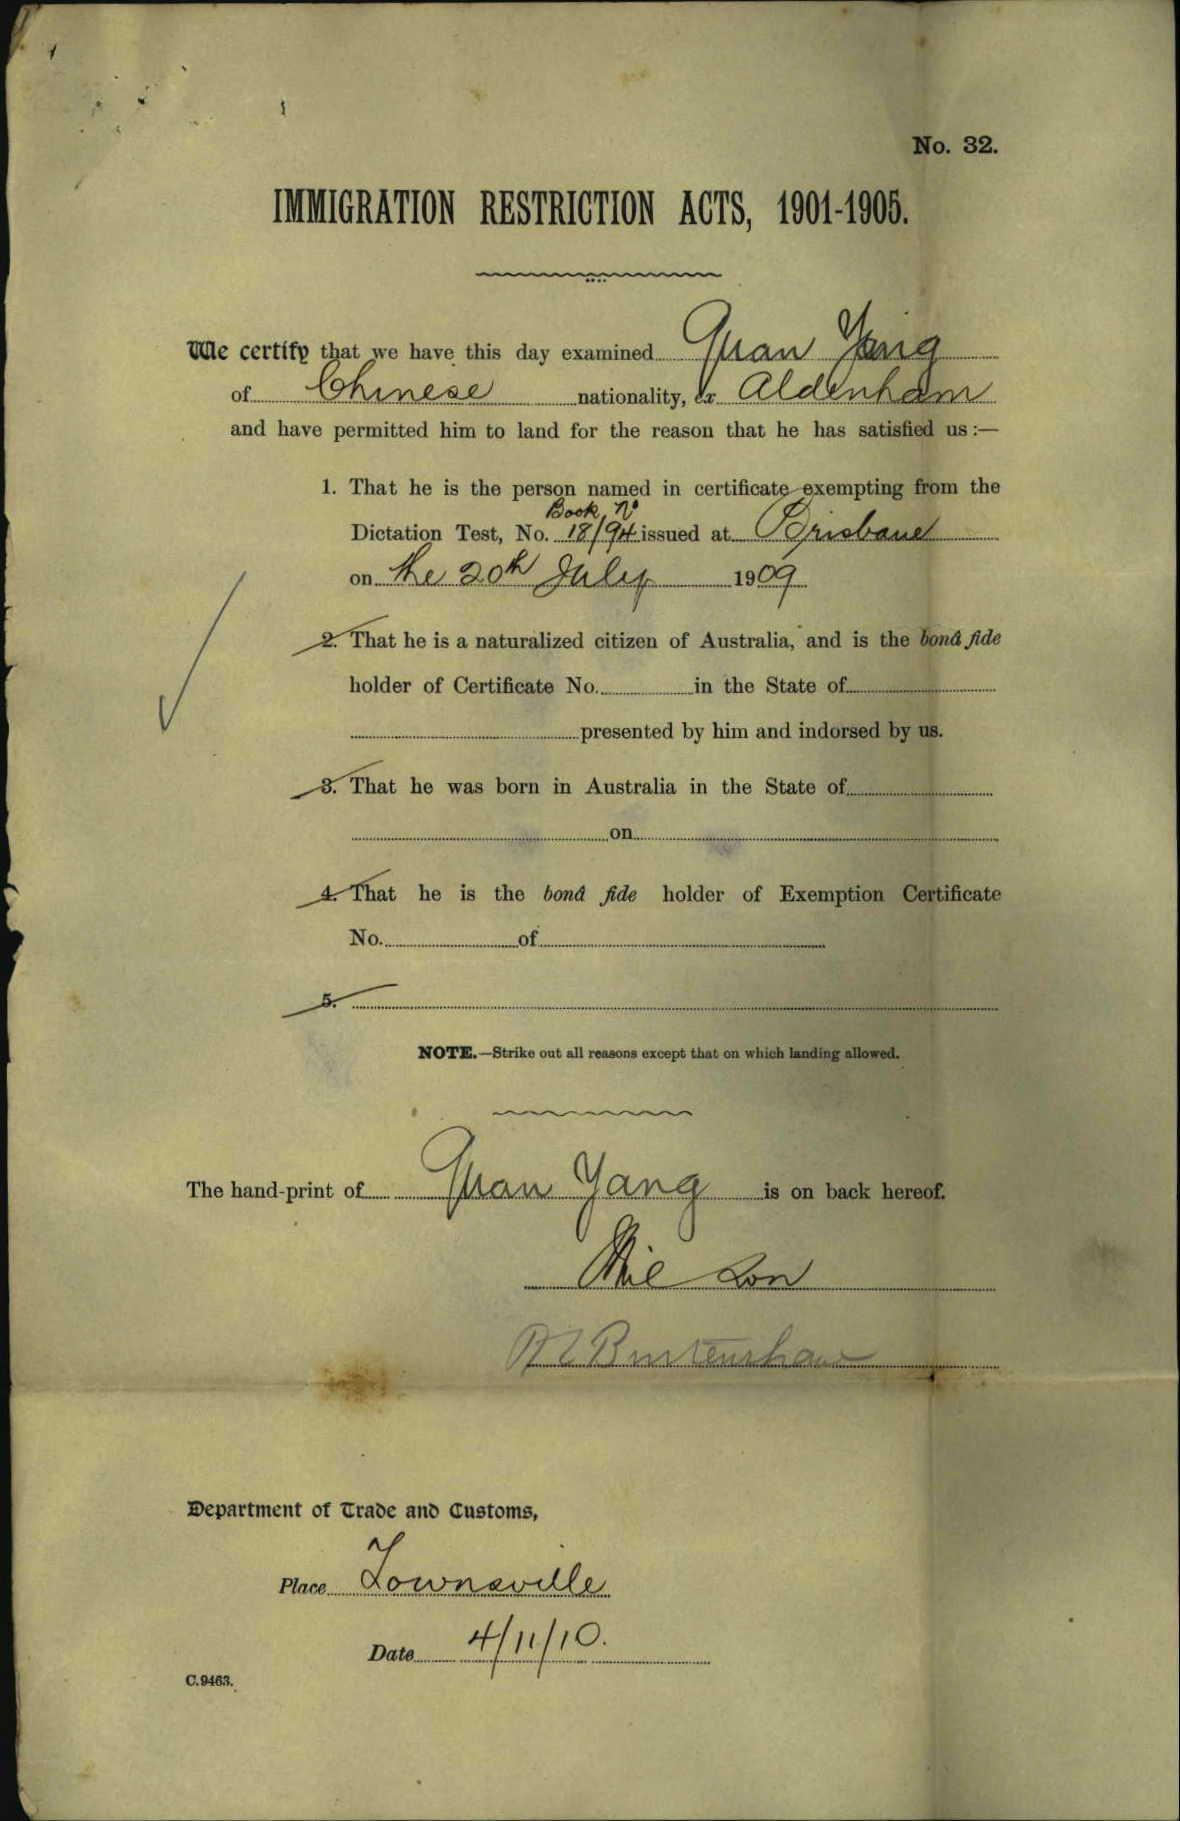 No. 32.
IMMIGRATION RESTRICTION ACTS, 1901-1905.
We certify that we have this day examined Quan Yang
of Chinese nationality, ex Aldenham
and have permitted him to land for the reason that he has satisfied us :—
1. That he is the person named in certificate exempting from the
Book No
Dictation Test, No. 18/94 issued at Brisbane
on the 20th July 1909
2. That he is a naturalized citizen of Australia, and is the bonâ fide
holder of Certificate No. in the State of
presented by him and indorsed by us.
3. That he was born in Australia in the State of
on
4. That he is the bonâ fide holder of Exemption Certificate
No. of
5.
NOTE.—Strike out all reasons except that on which landing allowed.
The hand-print of Quan Yang is on back hereof.
Burtenshaw
Department of Trade and Customs,
Place Townsville
Date 4/11/10.
C.9463.